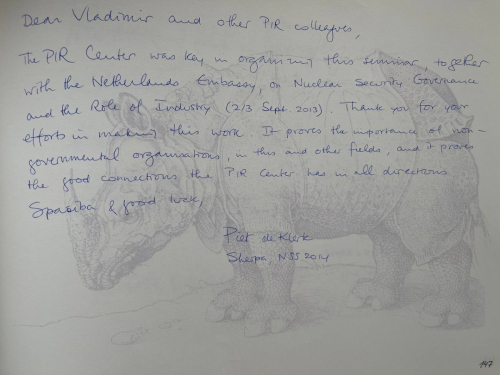 Dear Vladimir and other PIR colleagues,
The PIR Center was key in organizing this seminar, together
with the Netherlands Embassy, on Nuclear Security Governance
and the Role of Industry (2/3 Sept. 2013). Thank you for your
efforts in making this work. It proves the importance of non-
governmental organisations, in this and other fields, and it proves
the good connections the PIR Center has in all directions.
Spasiba & good luck,
Piet de Klerk
Sherpa, NSS 2014
147